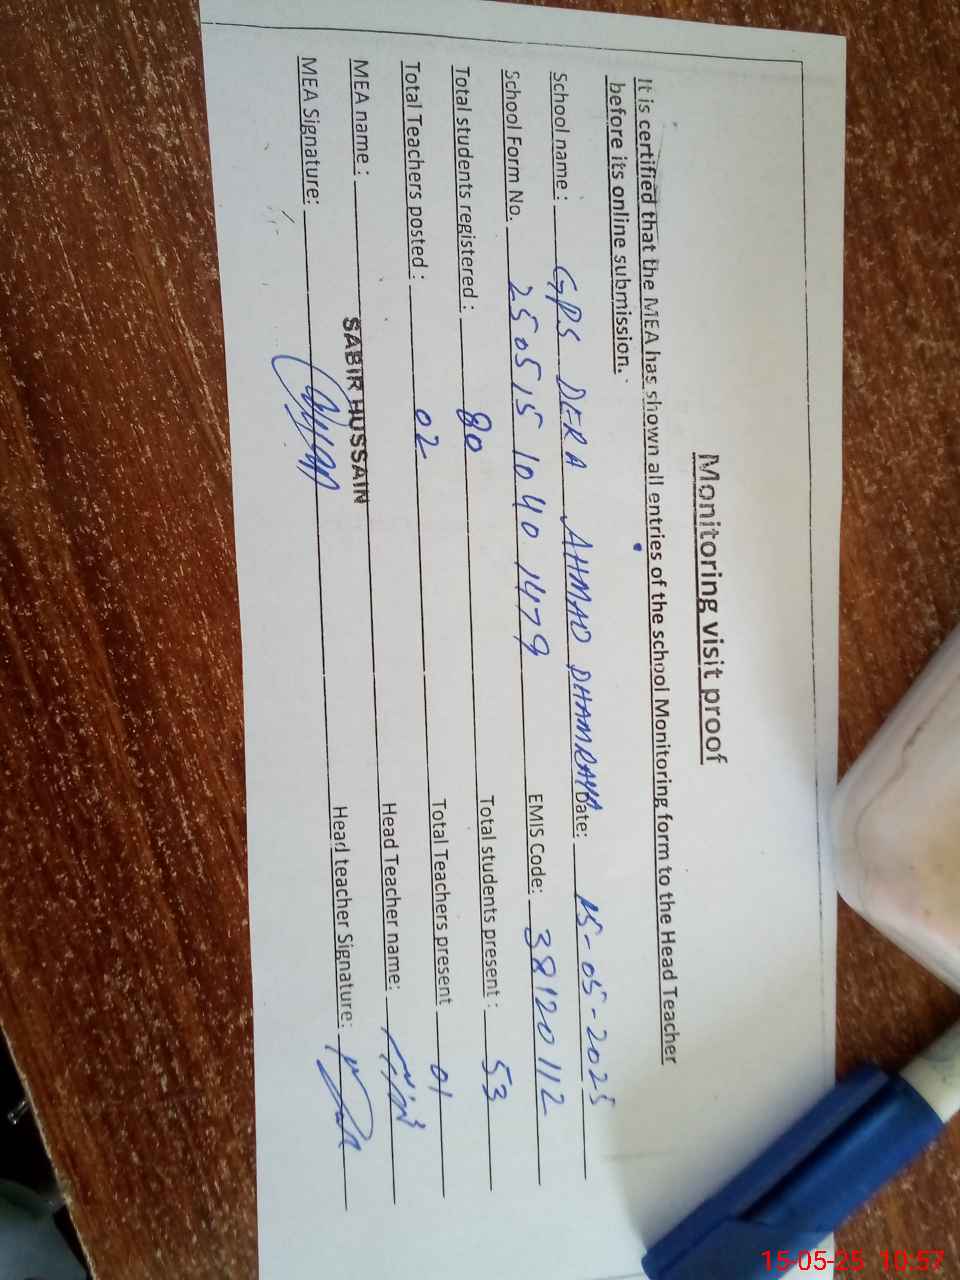 Monitoring visit proof
It is certified that the MEA has shown all entries of the school Monitoring form to the Head Teacher
before its online submission.
School name : GPS DERA AHMAD DHAMRAYA Date: 15-05-2025
School Form No. 250515 1040 1479 EMIS Code: 38120112
Total students registered : 80 Total students present : 53
Total Teachers posted : 02 Total Teachers present 01
MEA name : SABIR HUSSAIN Head Teacher name:
MEA Signature: Head teacher Signature:
15-05-25 10:57